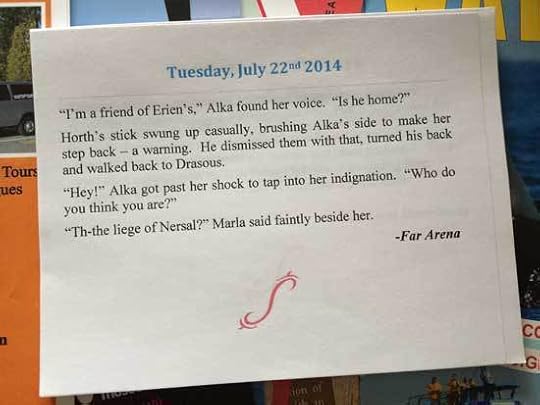 Tuesday, July 22nd 2014
“I’m a friend of Erien’s,” Alka found her voice. “Is he home?”
Horth’s stick swung up casually, brushing Alka’s side to make her
step back – a warning. He dismissed them with that, turned his back
and walked back to Drasous.
“Hey!” Alka got past her shock to tap into her indignation. “Who do
you think you are?”
“Th-the liege of Nersal?” Marla said faintly beside her.
-Far Arena
Tours
ues
n
CC
.G
ion of